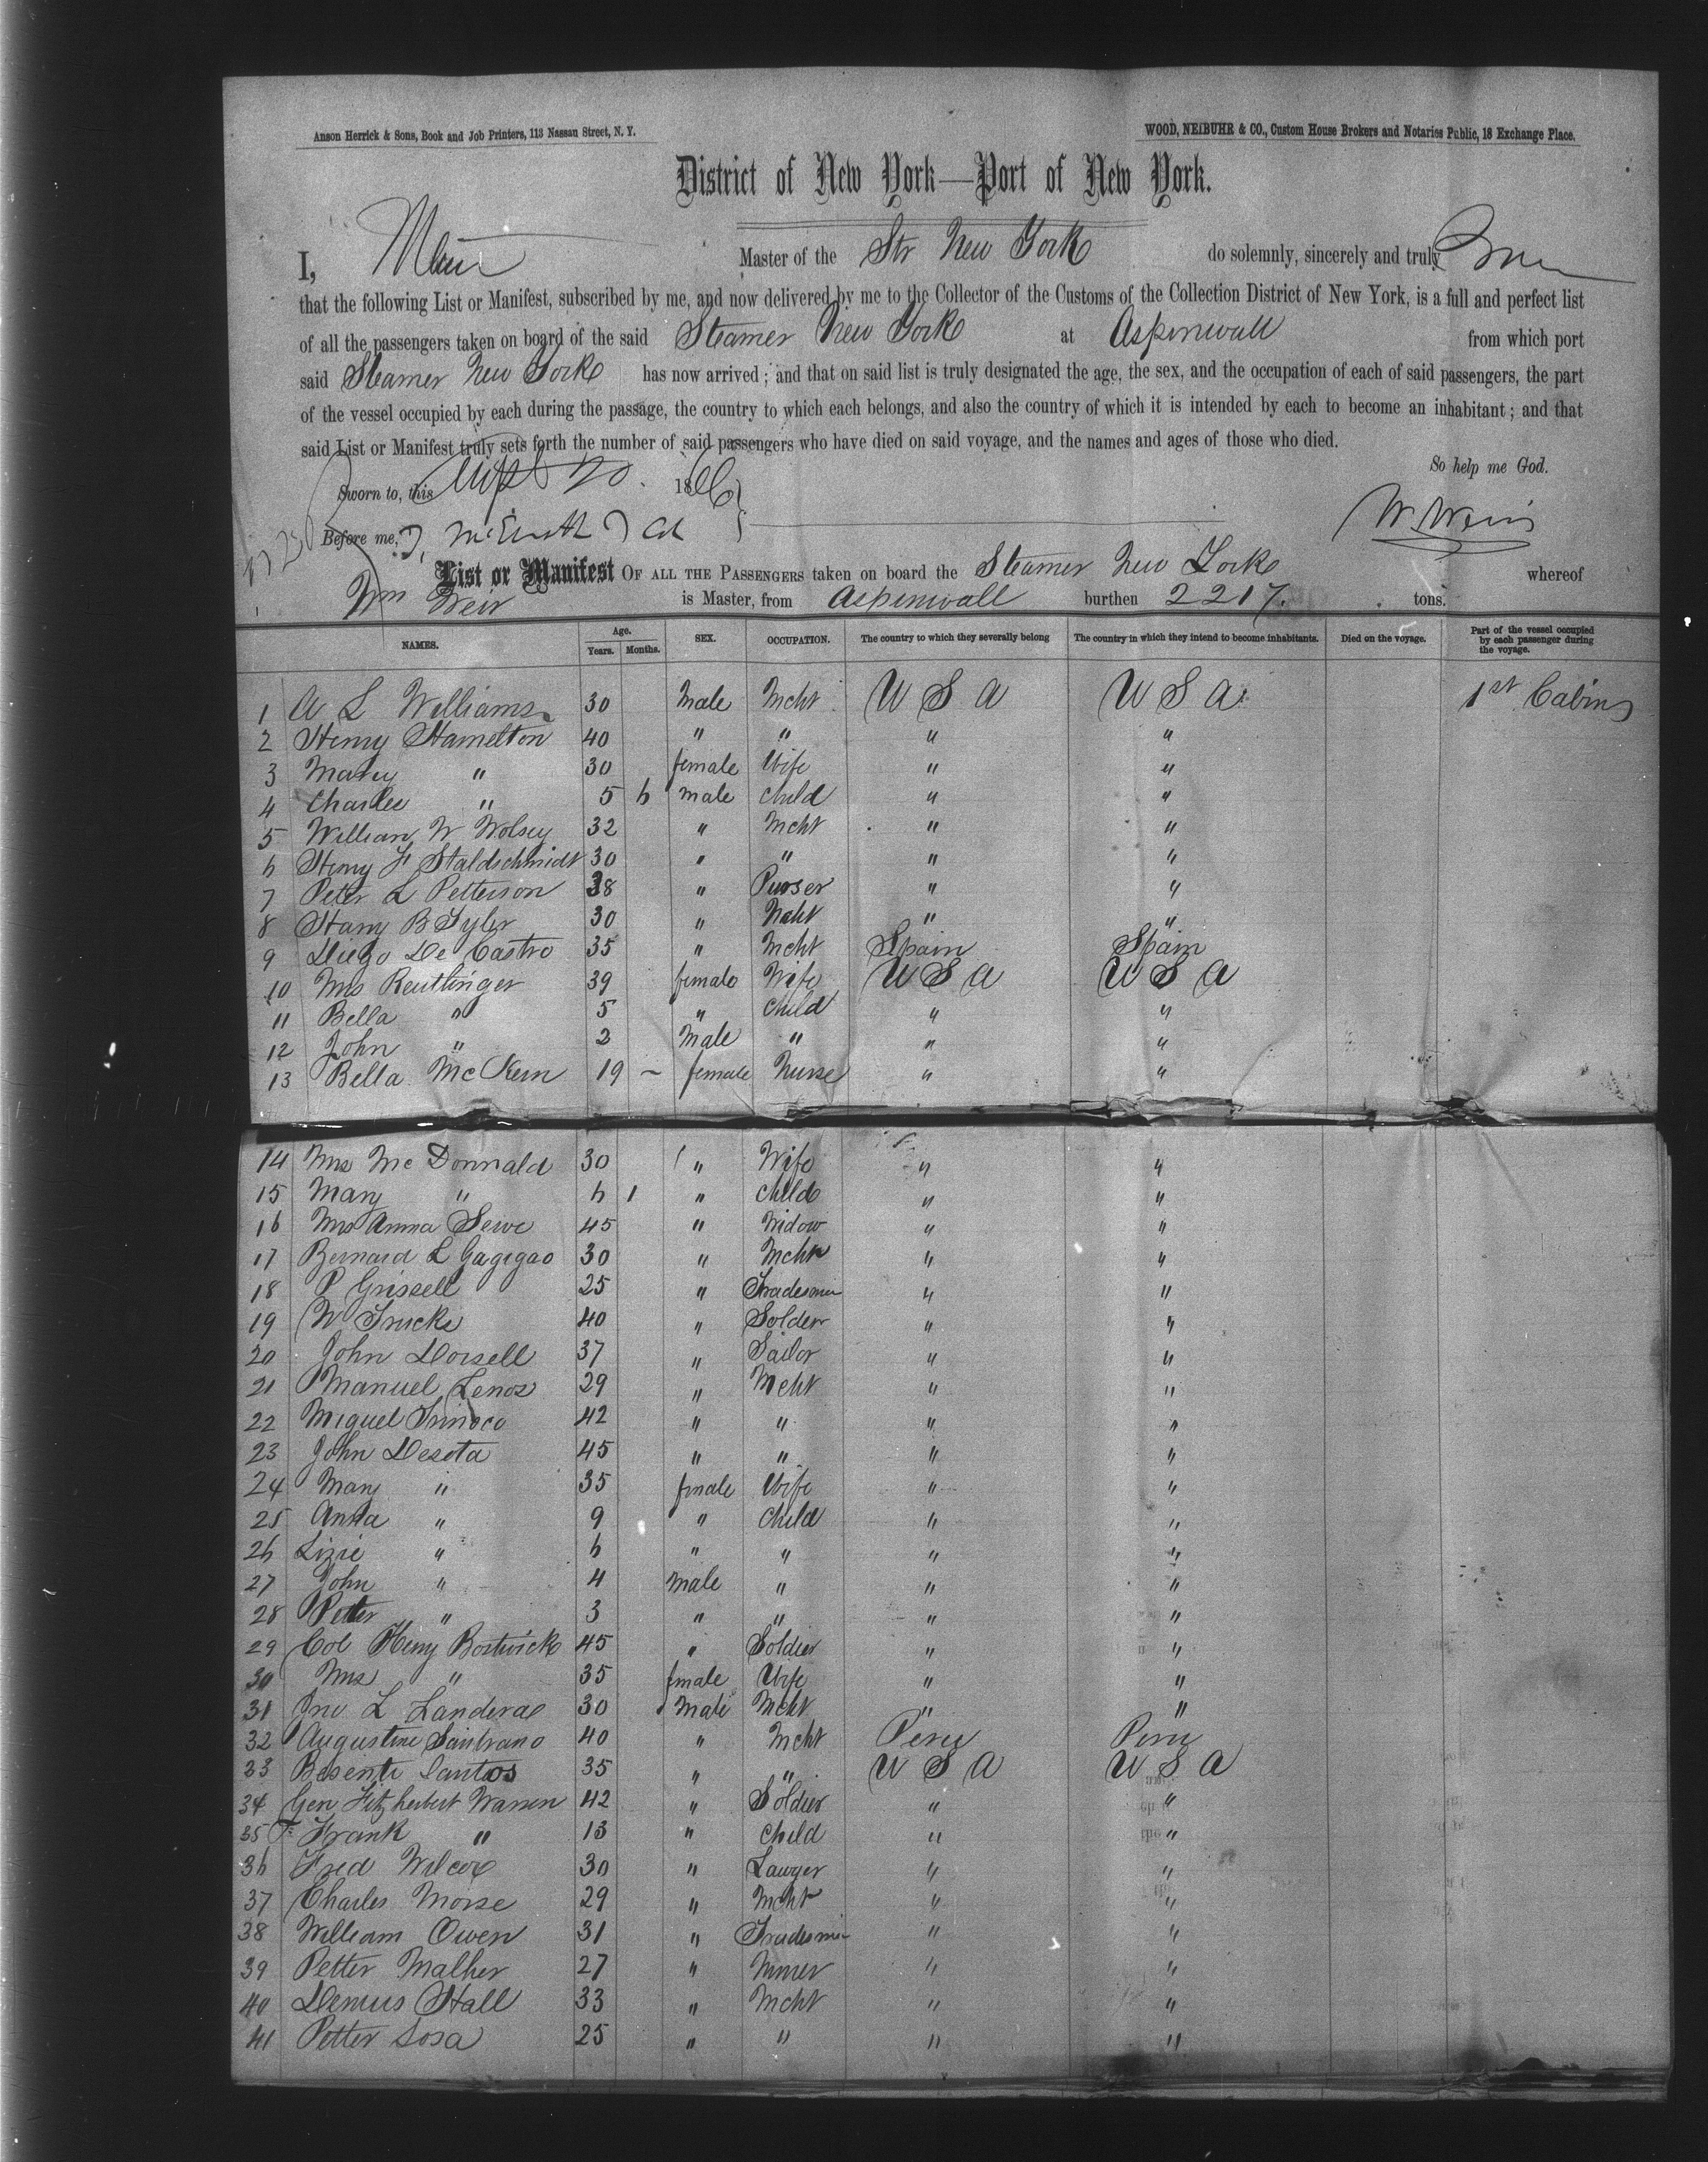 Anson Herrick & Sons, Book and Job Printers, 113 Nassau Street, N. Y.
WOOD, NEIBUHR & CO., Custom House Brokers and Notaries Public, 18 Exchange Place.
District of New York—Port of New York.
I, Weir Master of the Str New York do solemnly, sincerely and truly
that the following List or Manifest, subscribed by me, and now delivered by me to the Collector of the Customs of the Collection District of New York, is a full and perfect list
of all the passengers taken on board of the said Steamer New York at Aspinwall from which port
said Steamer New York has now arrived; and that on said list is truly designated the age, the sex, and the occupation of each of said passengers, the part
of the vessel occupied by each during the passage, the country to which each belongs, and also the country of which it is intended by each to become an inhabitant; and that
said List or Manifest truly sets forth the number of said passengers who have died on said voyage, and the names and ages of those who died.
So help me God.
Sworn to, this 20. 1866
W. Weir
Before me,
List or Manifest OF ALL THE PASSENGERS taken on board the Steamer New York whereof
Wm Weir is Master, from Aspinwall burthen 2217. tons.
NAMES. Age. Years. Months. SEX. OCCUPATION. The country to which they severally belong The country in which they intend to become inhabitants. Died on the voyage. Part of the vessel occupied by each passenger during the voyage.
1 A L Williams 30 Male Mcht U S A U S A 1st Cabin
2 Henry Hamelton 40 " " " "
3 Mary " 30 female Wife " "
4 Charlee " 5 6 male child " "
5 William W Wolsey 32 " Mcht " "
6 Henry F Staldschmidt 30 " " " "
7 Peter L Petterson 38 " Purser " "
8 Harry B Tyler 30 " Mcht " "
9 Diego De Castro 35 " Mcht Spain Spain
10 Mrs Reutlinger 39 female Wife U S A U S A
11 Bella " 5 " child " "
12 John " 2 Male " " "
13 Bella McKern 19 – female Nurse " "
14 Mrs Mc Donnald 30 " Wife " "
15 Mary " 6 1 " child " "
16 Mrs Anna 45 " Widow " "
17 Bernard L Gagigao 30 " Mcht " "
18 P Grissell 25 " Tradesman " "
19 W Trucks 40 " Solder " "
20 John Dorsell 37 " Sailor " "
21 Manuel Lenos 29 " Mcht " "
22 Miguel 42 " " " "
23 John Desota 45 " " " "
24 Mary " 35 female Wife " "
25 Anna " 9 " child " "
26 Lizie " 6 " " " "
27 John " 4 male " " "
28 Petter " 3 " " " "
29 Col Henry Bostwick 45 " Soldier " "
30 Mrs " 35 female Wife " "
31 Jno L Landerae 30 Male Mcht " "
32 Augustine Santrano 40 " Mcht Peru Peru
33 Besente Santos 35 " " U S A U S A
34 Gen Fitzherbert Warren 42 " Soldier " "
35 Frank " 13 " child " "
36 Fred Wilcox 30 " Lawyer " "
37 Charles Morse 29 " Mcht " "
38 William Owen 31 " Tradesman " "
39 Petter Malher 27 " Miner " "
40 Demus Hall 33 " Mcht " "
41 Petter Sosa 25 " " " "